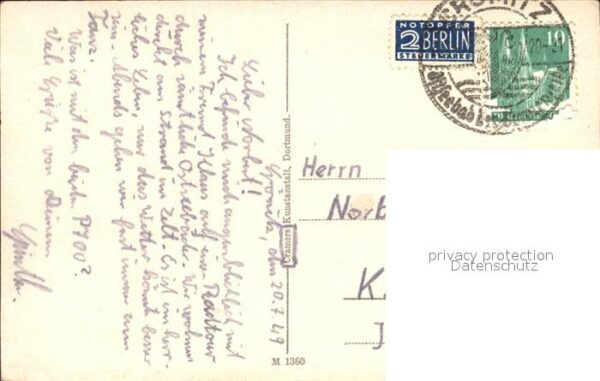 Grömitz, den 20.7.49
Lieber Norbert!
Ich befinde mich augenblicklich mit
meinem Freund Klaus auf einer Radtour
durch sämtliche Ostseebäder. Wir wohnen
direkt am Strand im Zelt. Es ist ein herr-
liches Leben, nur das Wetter könnte besser
sein. Abends gehen wir fast immer zum
Tanz.
Was ist mit den P700?
Viele Grüße von Deinem
Günther
Cramers Kunstanstalt, Dortmund.
M 1360
NOTOPFER
2 BERLIN
STEUERMARKE
10
Herrn
Norb
K
privacy protection
Datenschutz